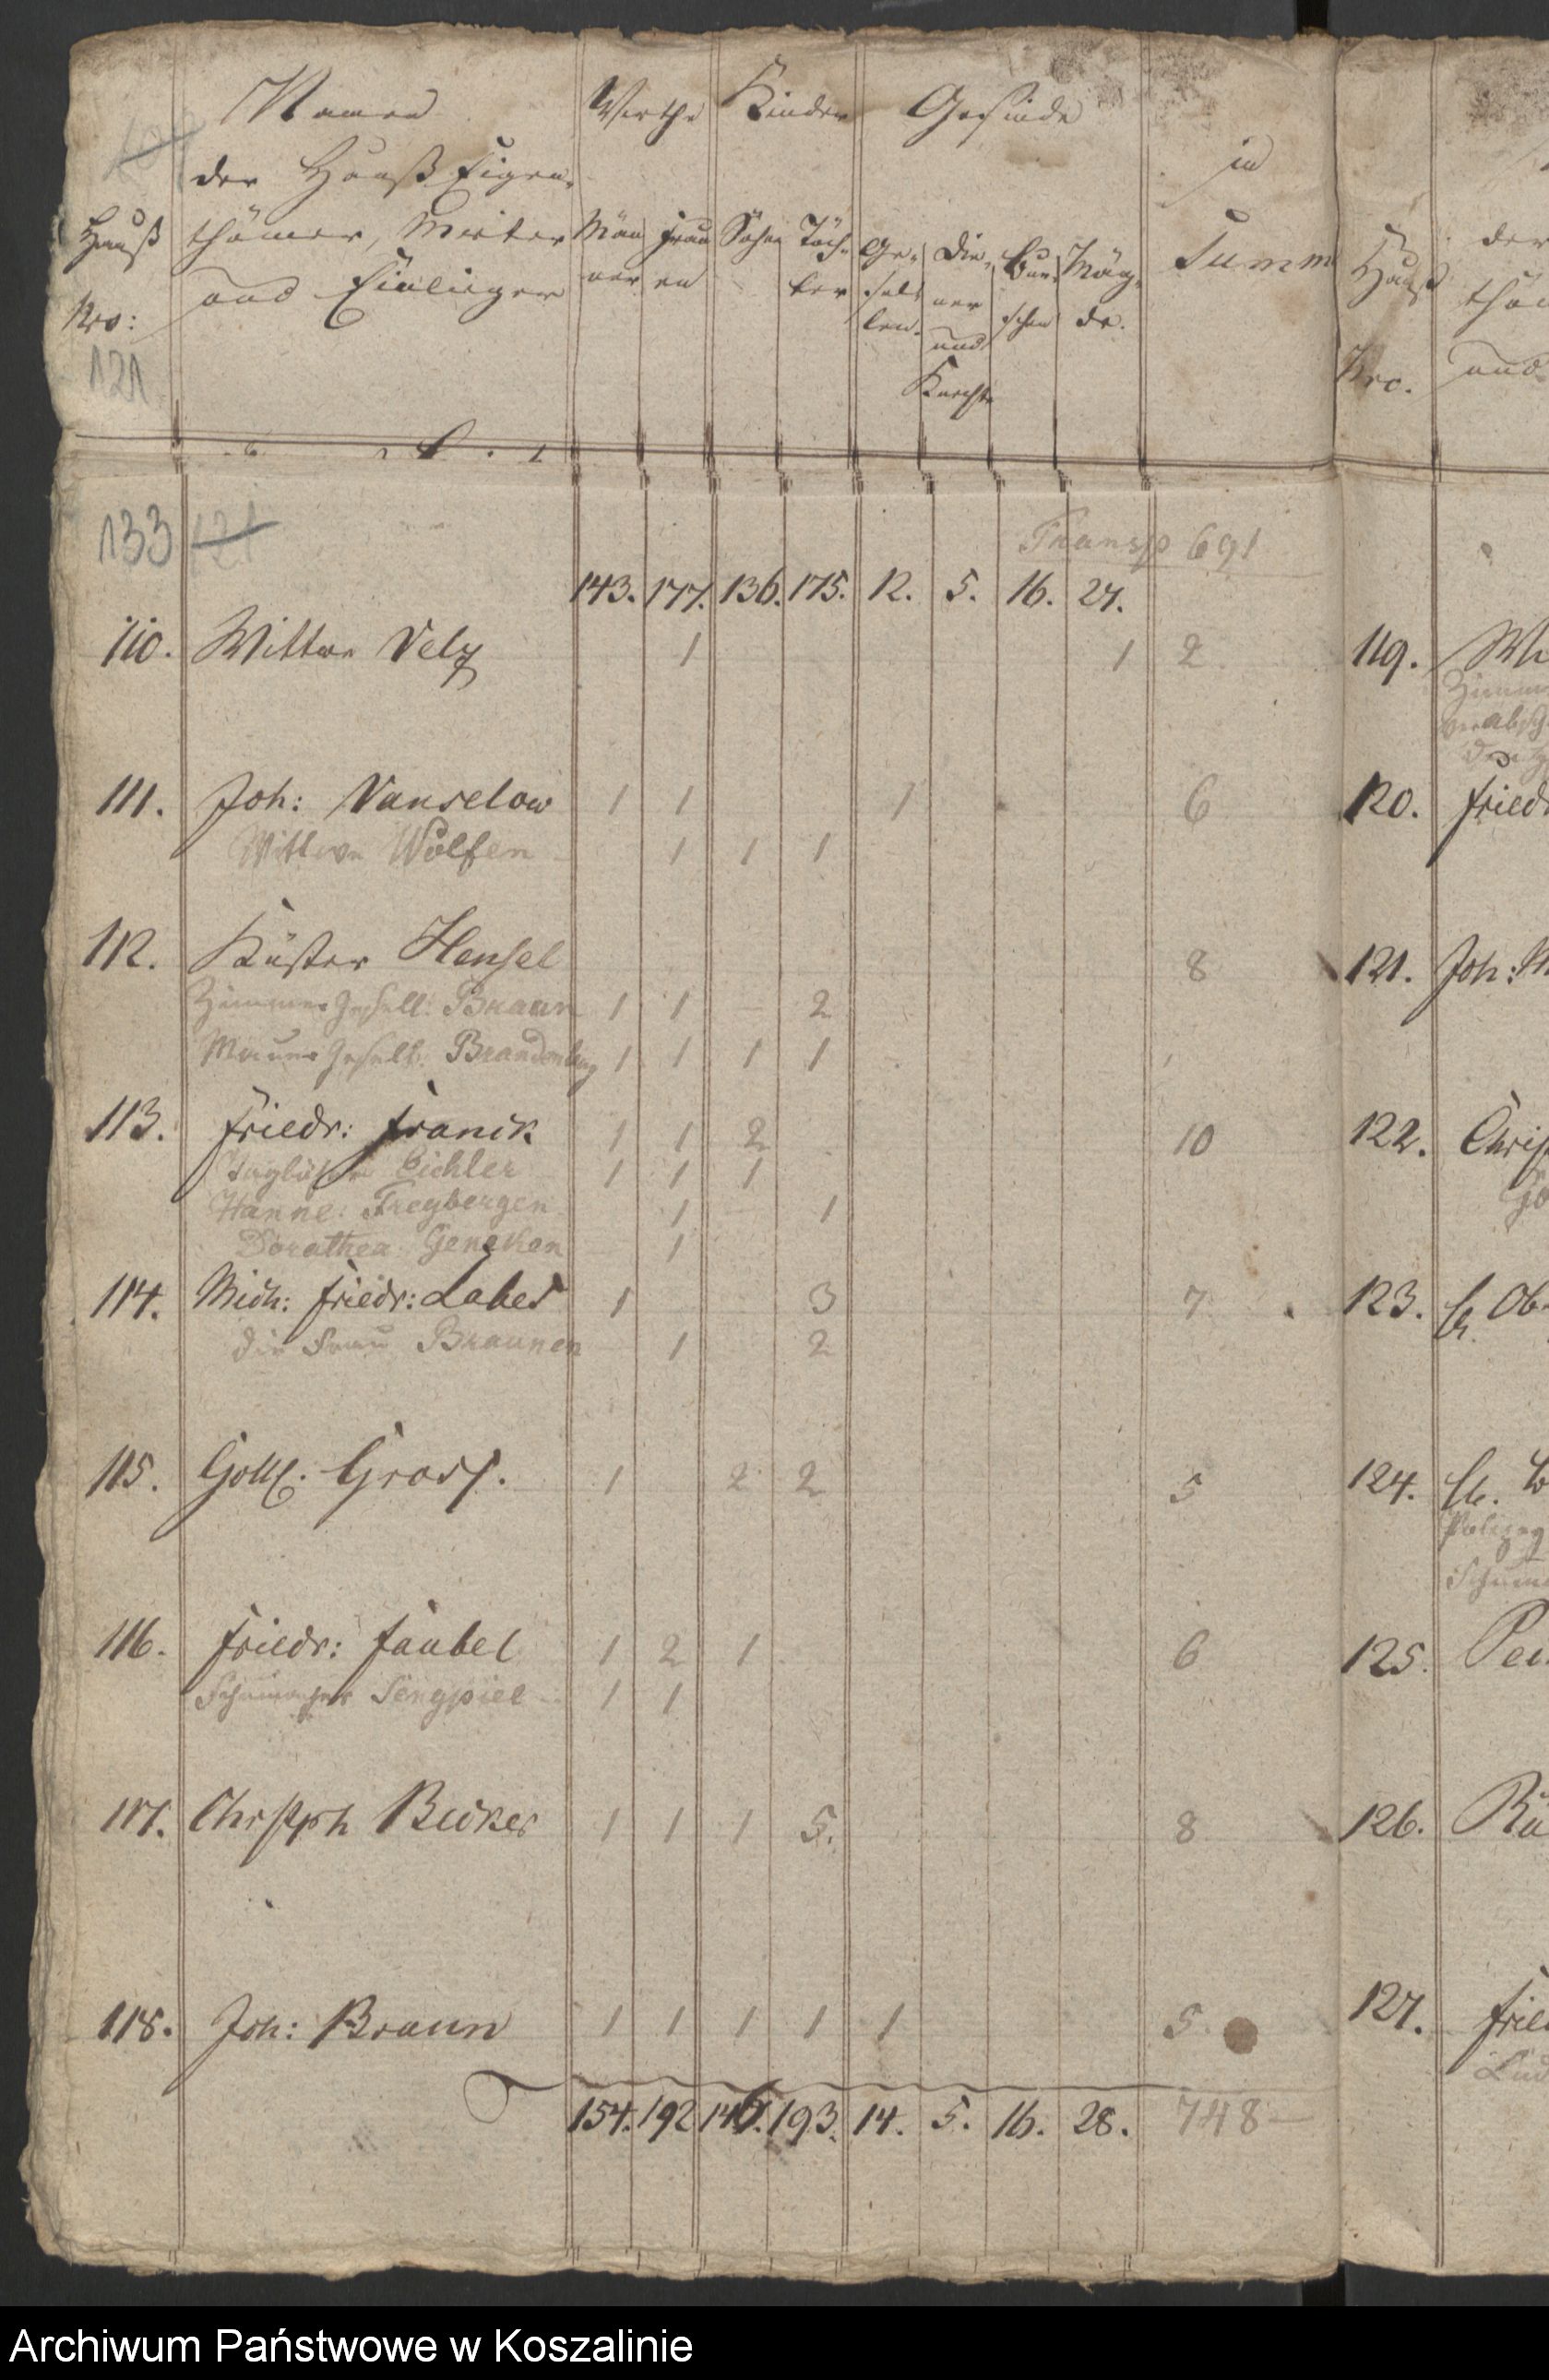 Namen Wirthe Kinder Gesinde
der Hauß Eigen- in
Hauß thümer, Mieter Män Frau Söhne Töch- Ge- Die- Bur Mäg- Summ
und Einlieger ner en ter sel- ner schen de.
Nro: len. und
121 Knechte
133 121
Transp 691
143. 177. 136. 175. 12. 5. 16. 27.
110. Wittwe Velz 1 1 2
111. Joh: Vanselow 1 1 1 6
Wittwe Wolfen 1 1 1
112. Küster Hensel 8
Zimmer Gesell: Braun 1 1 — 2
Maurer Gesell: Brandenburg 1 1 1 1
113. Friedr: Franck 1 1 2 10
Taglöhner Eichler 1 1 1
Hanne: Freybergen 1 — 1
Dorathea Geneken 1
114. Mich: Friedr: Labes 1 3 7
die Frau Braunen 1 2
115. Gottf. Gross. 1 2 2 5
116. Friedr: Faubel 1 2 1 6
Schumacher Sengpiel 1 1
117. Christph Becker 1 1 1 5. 8
118. Joh: Braun 1 1 1 1 1 5.
154. 192 146. 193. 14. 5. 16. 28. 748
Hauß der
Nro. und
119.
120. Fried
121. Joh: M
122. Chris
123.
124.
125.
126.
127. Frie
Archiwum Państwowe w Koszalinie